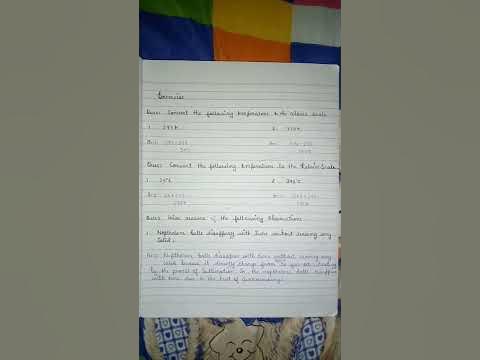 Exercise
Ques: Convert the following temperature to the celsius scale
1. 293 K 2. 470 K
Ans: 293-273 Ans: 470-273
20°C 197°C
Ques: Convert the following temperature to the Kelvin Scale
1. 25°C 2. 373°C
Ans: 25+273 Ans: 373+273
298 K
Ques: Give reason of the following Observations
1. Napthalene balls disappear with time without leaving any
solid.
Ans: Napthalene balls disappear with time without leaving any
solid because it directly change from to gas
by the process of Sublimation. So the napthalene balls disappear
with time due to the heat of surrounding.